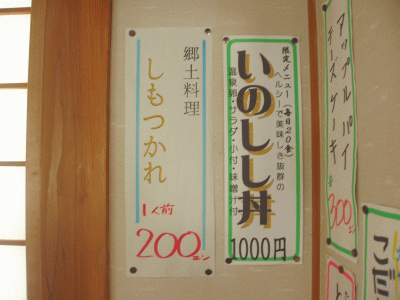 郷土料理
しもつかれ
1人前
200エン
限定メニュー(毎日20食)
ヘルシーで美味しさ抜群の
いのしし丼
温泉卵・サラダ・小付・味噌汁付
1000円
アップルパイ
チーズケーキ
300エン